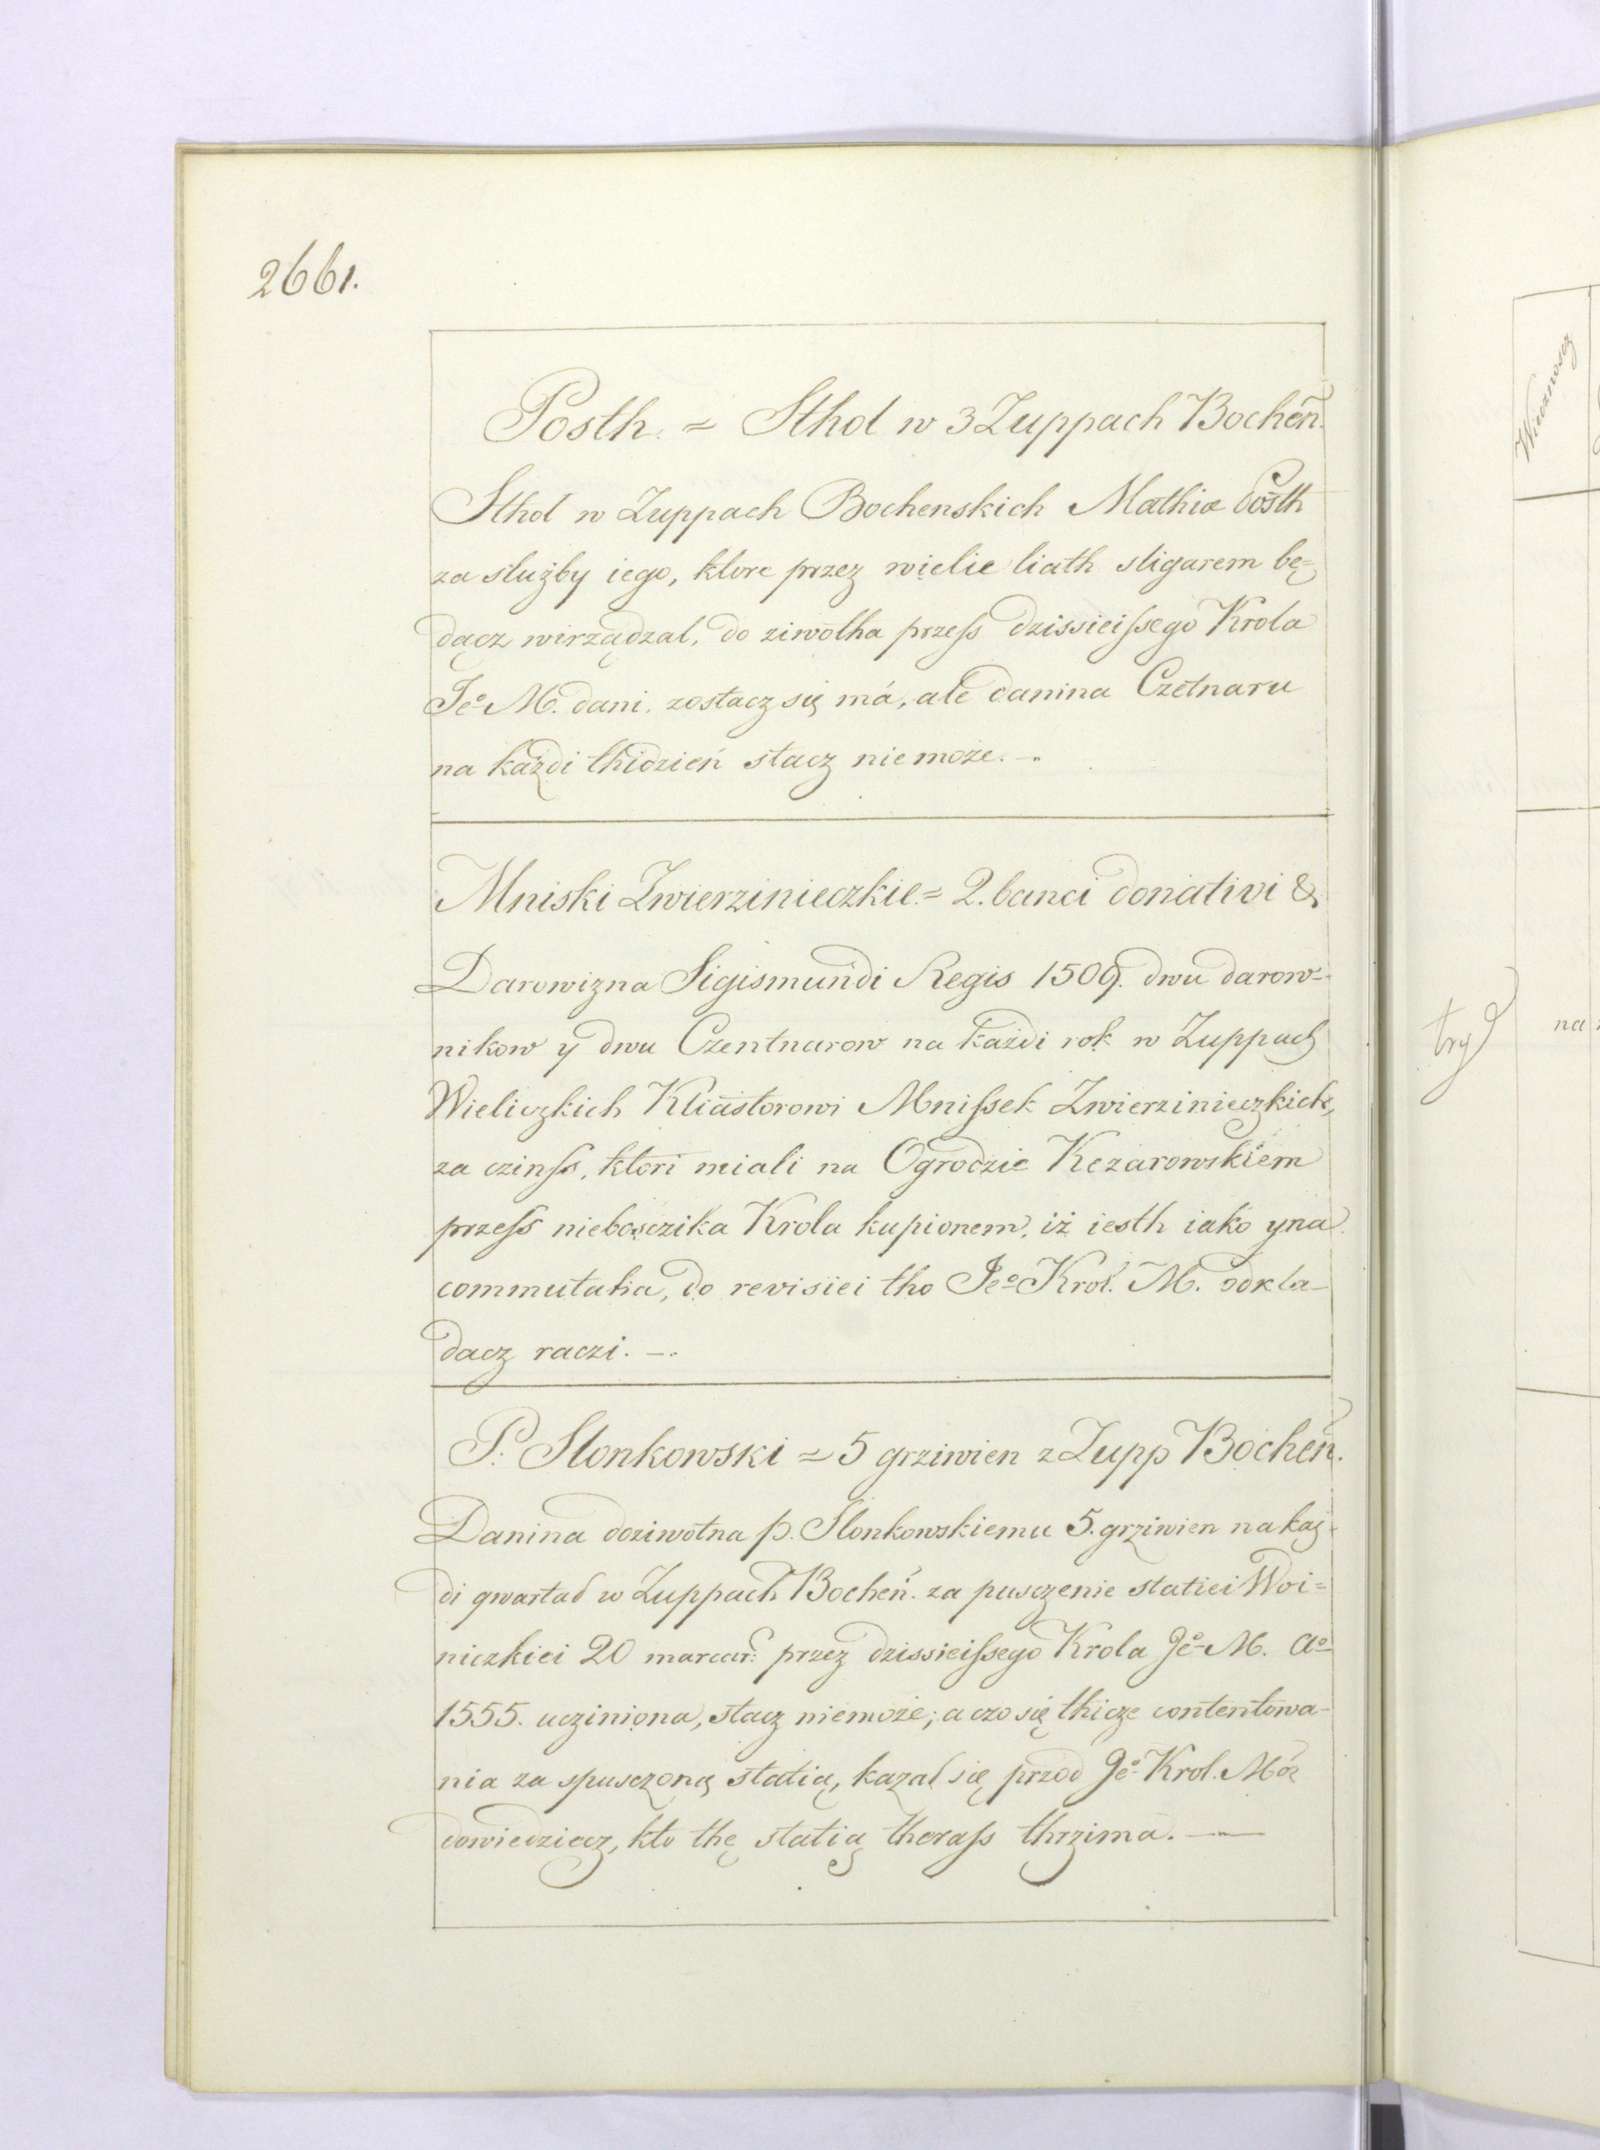 2661.
Posth. = Sthol w 3 Zuppach Bocheń.
Sthol w Zuppach Bochenskich Mathiæ Posth
za służby iego, ktore przez wielie liath stigarem bę=
dącz wirządzal, do ziwotha przeſs dzissieiſsego Krola
Jeº M. dani. zostacz się má, ale danina Czetnaru
na każdi thidzień stacz niemoże. —
Mniski Zwierzinieczkie = 2. banci donativi &
Darowizna Sigismundi Regis 1509. dwu darow=
nikow y dwu Czentnarow na każdi rok w Zuppach
Wieliczkich Kliastorowi Mniſsek Zwierzinieczkich,
za czinſs, ktori miali na Ogrodzie Kezarowskiem
przeſs nieboszczika Krola kupionem, iż iesth iako yna
commutatia, do revisiei tho Jeº Krol. M. odkla-
dacz raczi. —
P. Slonkowski = 5 grziwien z Zupp Bocheń.
Danina doziwotna p. Slonkowskiemu 5. grziwien na kaz-
di qwartal w Zuppach Bocheń. za pusczenie statiei Woi=
niczkiei 20 marcar. przez dzissieiſsego Krola Jeº M. Aº
1555. ucziniona, stacz niemoże; a czo się thicze contentowa-
nia za spusczoną statią, kazal się przod Jeº Krol. Mć
dowiedziecz, kto thę statią theraſs thrzima. —
Wiecznoscz
try
na